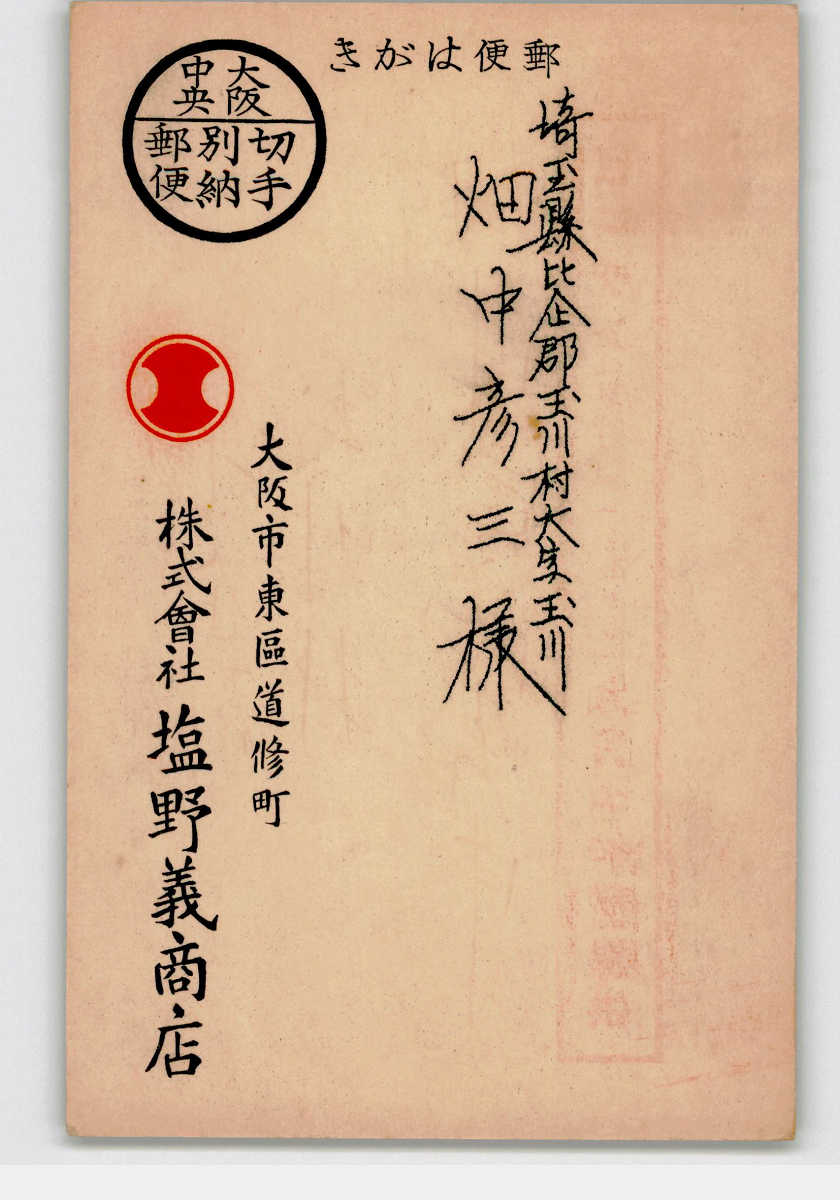 郵便はがき
大阪
中央
切手
別納
郵便
埼玉縣比企郡玉川村大字玉川
畑中彦三様
大阪市東區道修町
株式會社塩野義商店